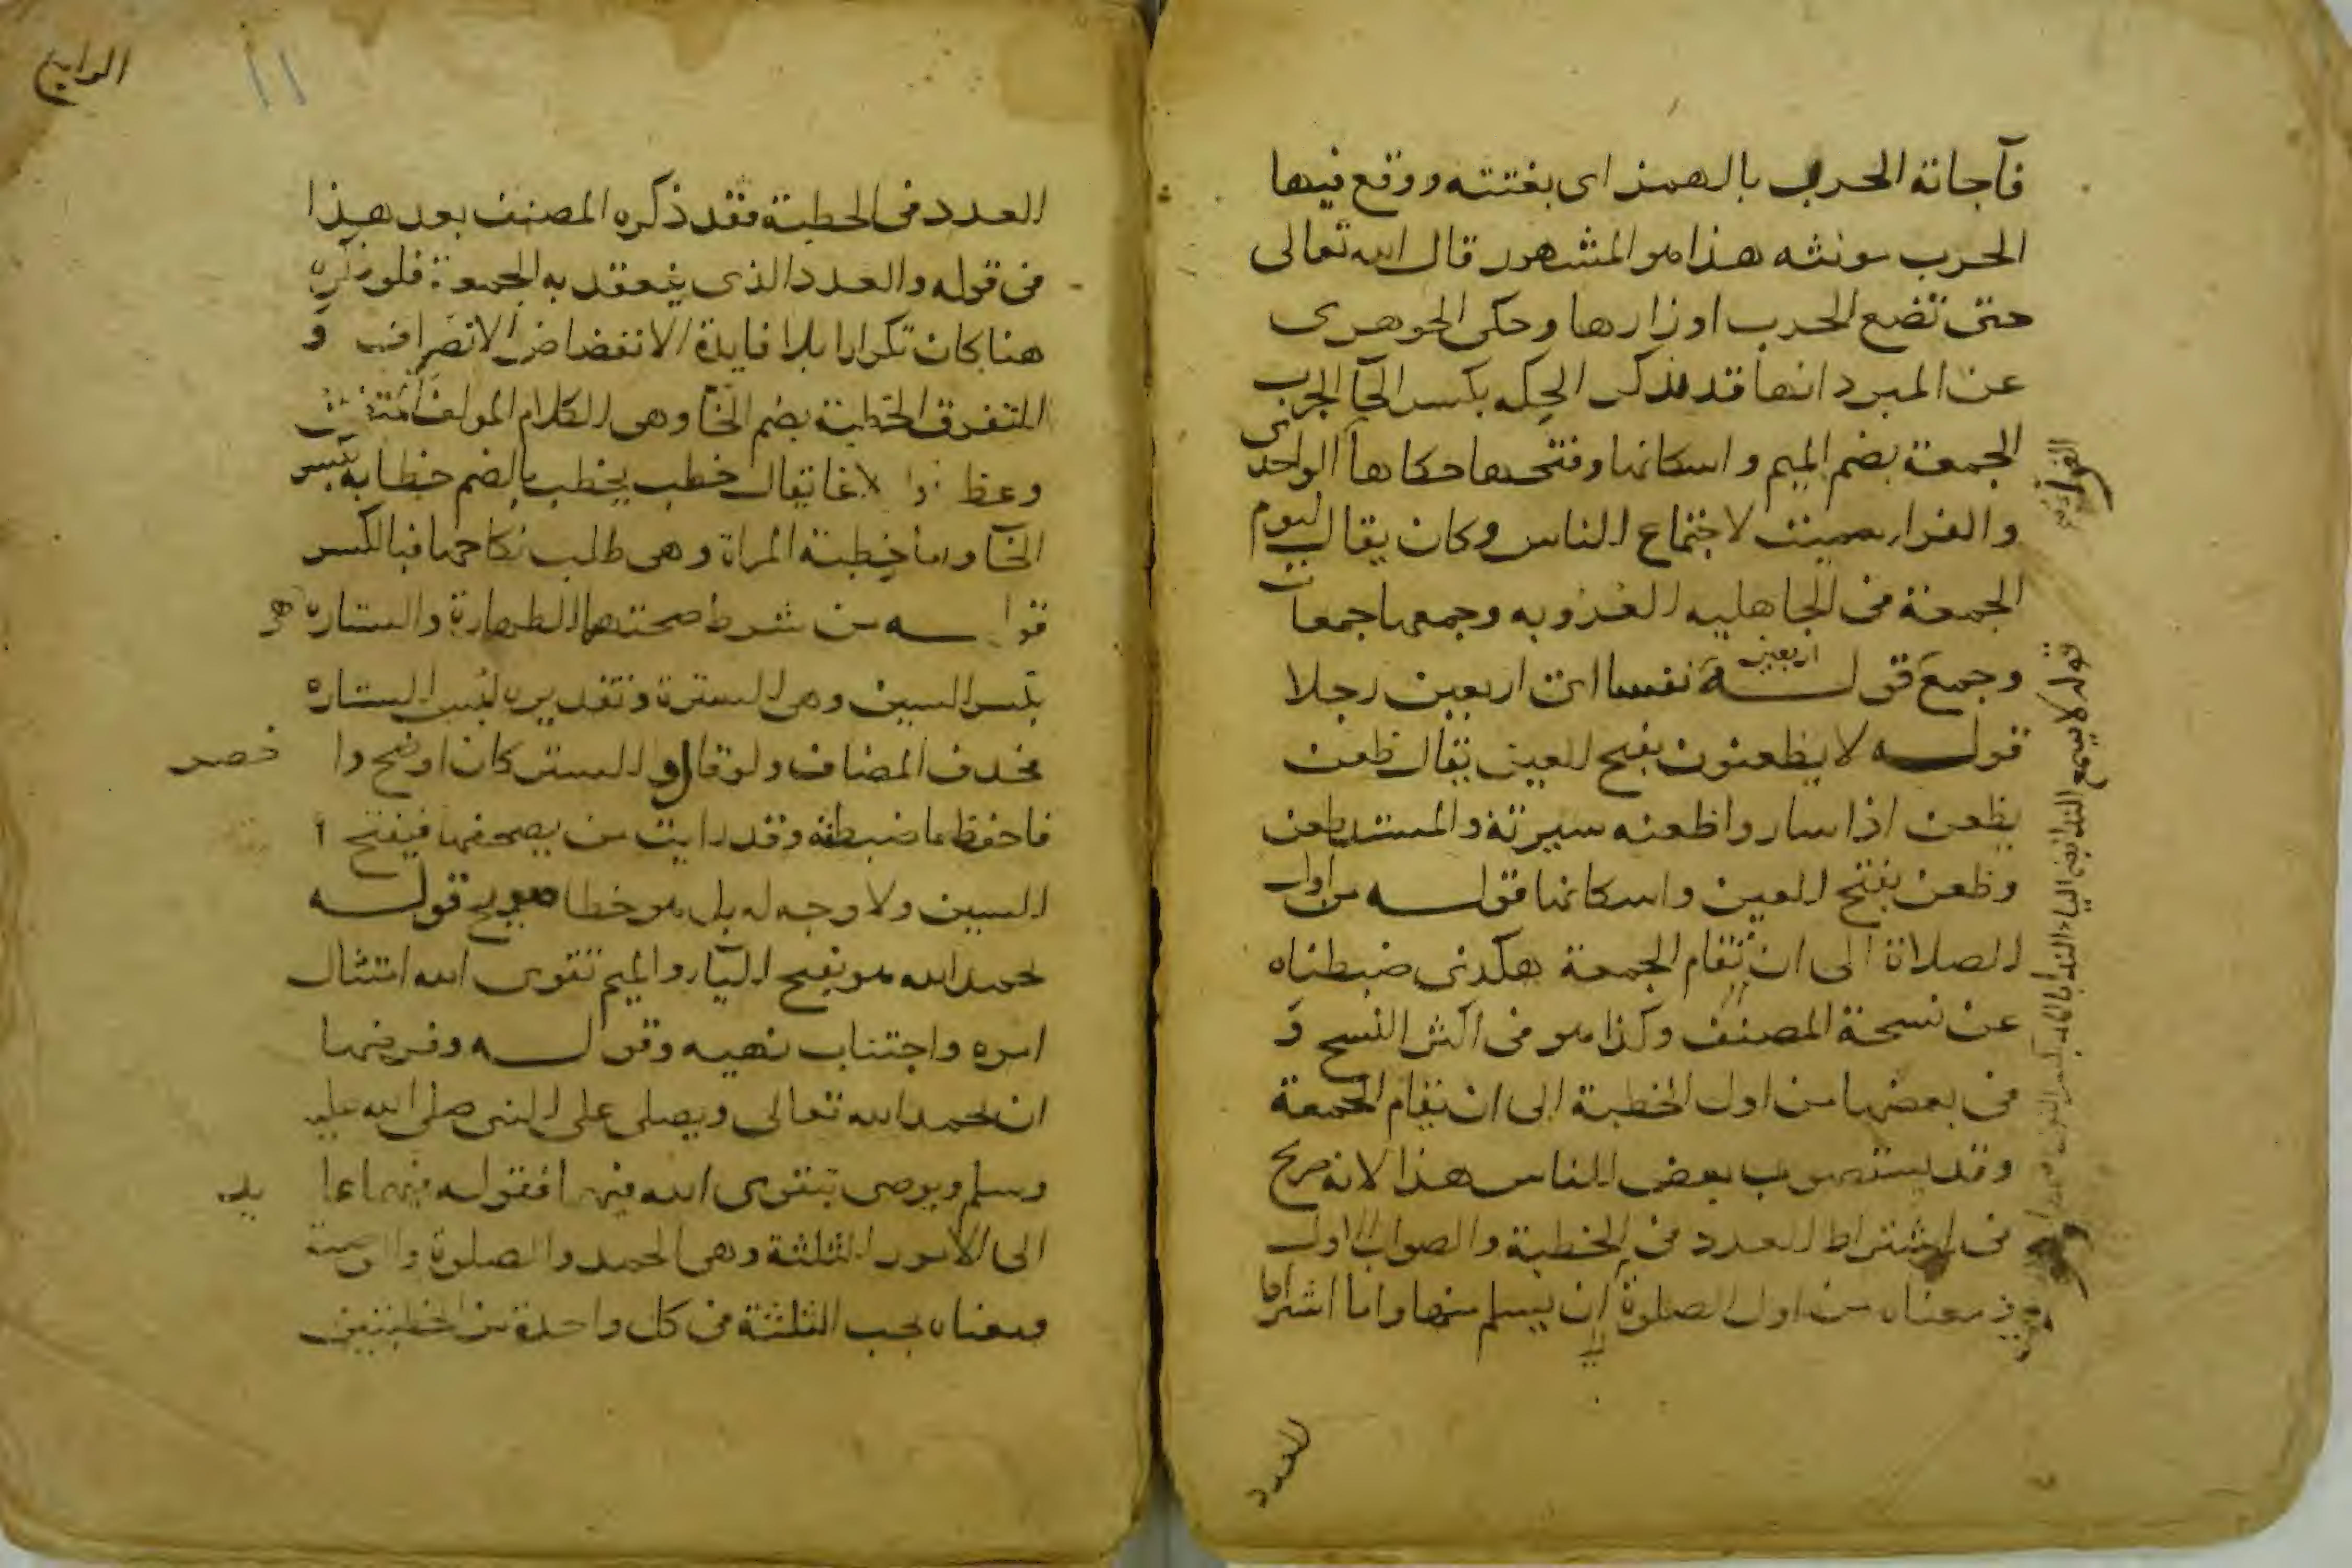 فآجاته الحرب بالهمز اى بغتته ووقع فيها
الحرب مونثه هذا هو المشهور قال الله تعالى
حتى تضع الحرب اوزارها وحكى الجوهرى
عن المبرد انها قد تذكر الحكه بكسر الحآ الجرب
الجمعة بضم الميم واسكانها وفتحها حكاها الواحدى
والفرا سميت لاجتماع الناس وكان يقال ليوم
الجمعة فى الجاهليه العروبه وجمعها جمعات
وجمع قولـــه اربعين نفسا اى اربعين رجلا
قولـــه لا يظعنون بفتح العين يقال ظعن
يظعن اذا سار واظعنه سيرته والمصدر ظعن
وظعن بفتح العين واسكانها قولـــه من اول
الصلاة الى ان تقام الجمعة هكذى ضبطناه
عن نسخة المصنف وكذا هو فى اكثر النسخ و
فى بعضها من اول الخطبة الى ان تقام الجمعة
وقد يستصوب بعض الناس هذا لانه صريح
فى اشتراط العدد فى الخطبة والصواب الاول
ومعناه من اول الصلوة الى ان يسلم منها واما اشتراط
العدد
قوله لا يسمع الندا
الرابع
١١
العدد فى الخطبة فقد ذكره المصنف بعد هذا
فى قوله والعدد الذى ينعقد به الجمعة فلو ذكره
هنا كان تكرارا بلا فايدة الانفضاض الانصراف و
التفرق الخطبة بضم الخآ وهى الكلام المولف المتضمن
وعظا وابلاغا يقال خطب يخطب بالضم خطابه بكسر
الخآ واما خطبة المراة وهى طلب نكاحها فبالكسر
قولـــه من شرط صحتهما الطهارة والستاره هى
بكسر السين وهى السترة وتقديره لبس الستاره
فحذف المضاف ولو قال والستر كان اوضح وا خصر
فاحفظ ما ضبطته وقد رايت من يصحفها فيفتح
السين ولا وجه له بل هو خطا صريح قولـــه
لحمد الله هو بفتح اليآ والميم تقوى الله امتثال
امره واجتناب نهيه وقولـــه وفرضها
ان يحمد الله تعالى ويصلى على النبى صلى الله عليه
وسلم ويوصى بتقوى الله فيهما فقوله فيهما عايد
الى الامور الثلثة وهى الحمد والصلوة والوصية
ومعناه يجب الثلثة فى كل واحدة من الخطبتين